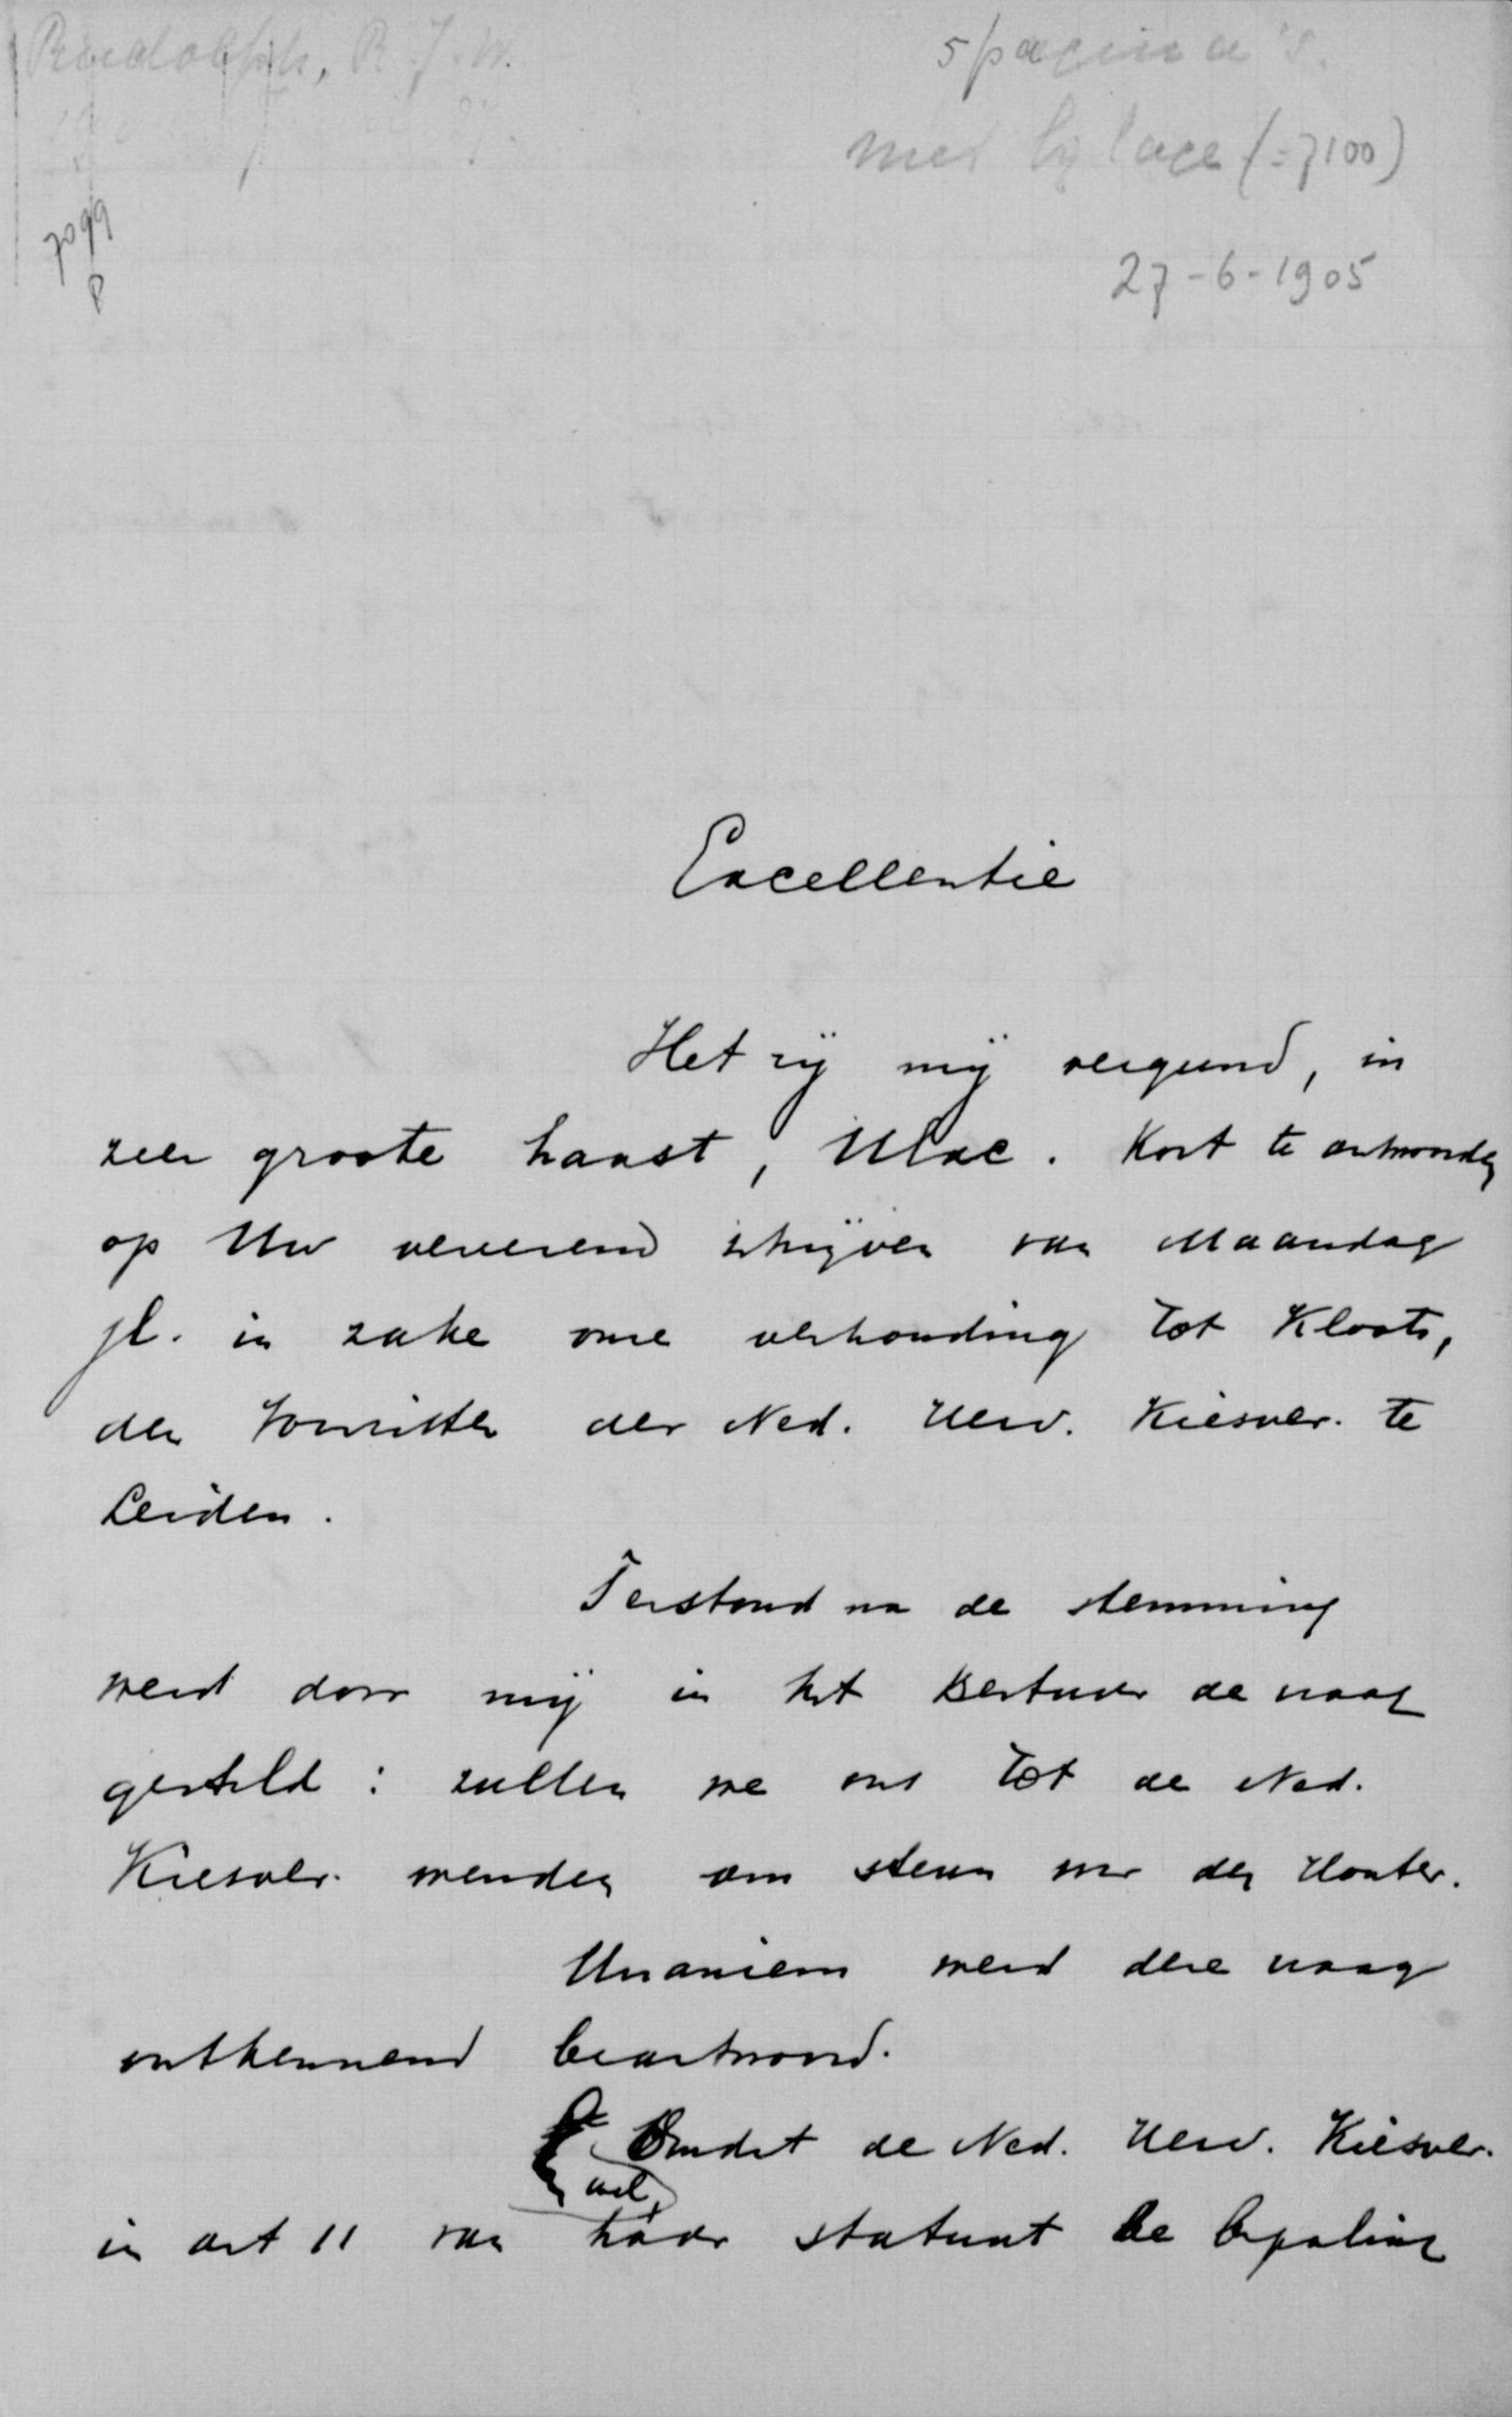 Rudolph, R.J.W.
5 pagina's.
met bijlage (=7100)
7099
P
27-6-1905
Excellentie
Het zij mij vergund, in
zeer groote haast, UExc. kort te antwoorden
op Uw vereerend schrijven van Maandag
jl. in zake onze verhouding tot Kloots,
den voorzitter der Ned. Herv. Kiesver. te
Leiden.
Terstond na de stemming
werd door mij in het Bestuur de vraag
gesteld: zullen we ons tot de Ned.
Kiesver. wenden om steun voor den Houter.
Unaniem werd deze vraag
ontkennend beantwoord.
Omdat de Ned. Herv. Kiesver.
wel
in art 11 van haar statuut de bepaling